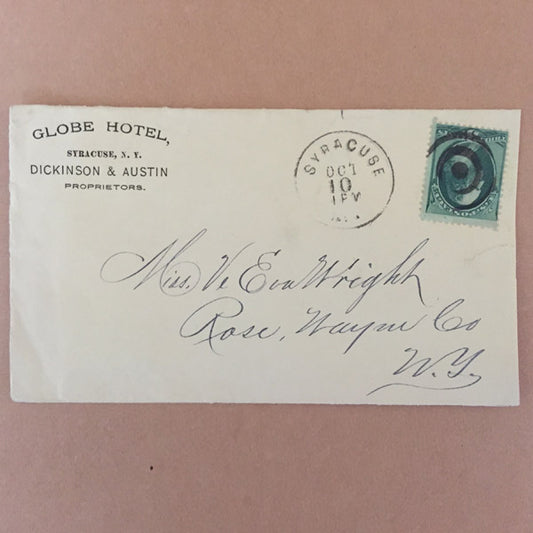 GLOBE HOTEL,
SYRACUSE, N. Y.
DICKINSON & AUSTIN
PROPRIETORS.
SYRACUSE
OCT
10
1PM
Miss. Va Eva Wright
Rose, Wayne Co
N.Y.